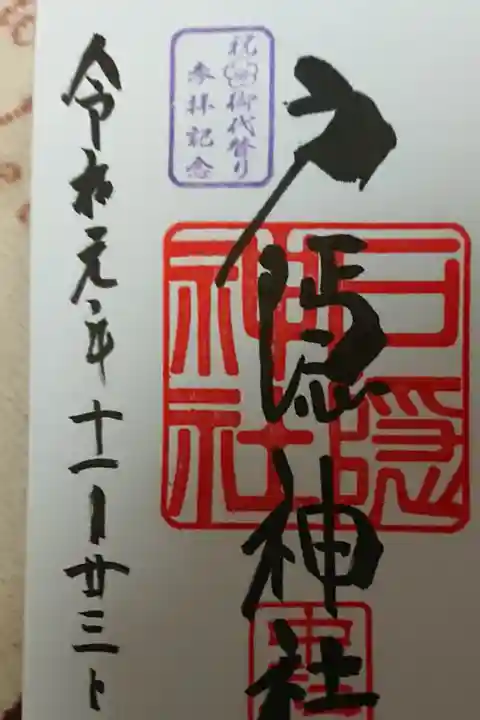 戸隠神社
祝御代替り
参拝記念
戸隠
神社
令和元年十一月廿三日